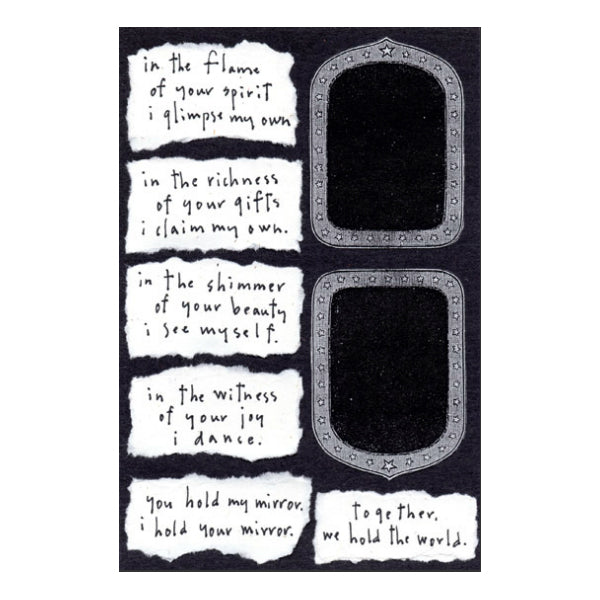 in the flame
of your spirit
i glimpse my own
in the richness
of your gifts
i claim my own.
in the shimmer
of your beauty
i see myself.
in the witness
of your joy
i dance.
you hold my mirror.
i hold your mirror.
together,
we hold the world.